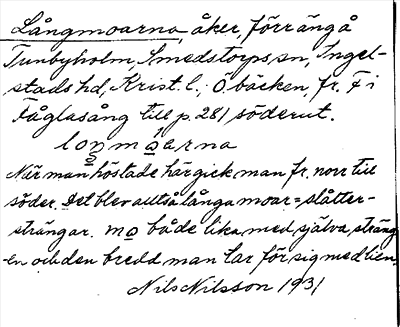 Långmoarna, åker, förr äng å
Tunbyholm, Smedstorps sn, Ingel-
stads hd, Krist. l., Ö bäcken, fr. F i
Fåglasång till p. 281 söderut.
loŋmoarna
När man höstade här gick man fr. norr till
söder. Det blev alltså långa moar = slåtter-
strängar. mo både lika med själva sträng
-en och den bredd man tar för sig med lien.
Nils Nilsson 1931